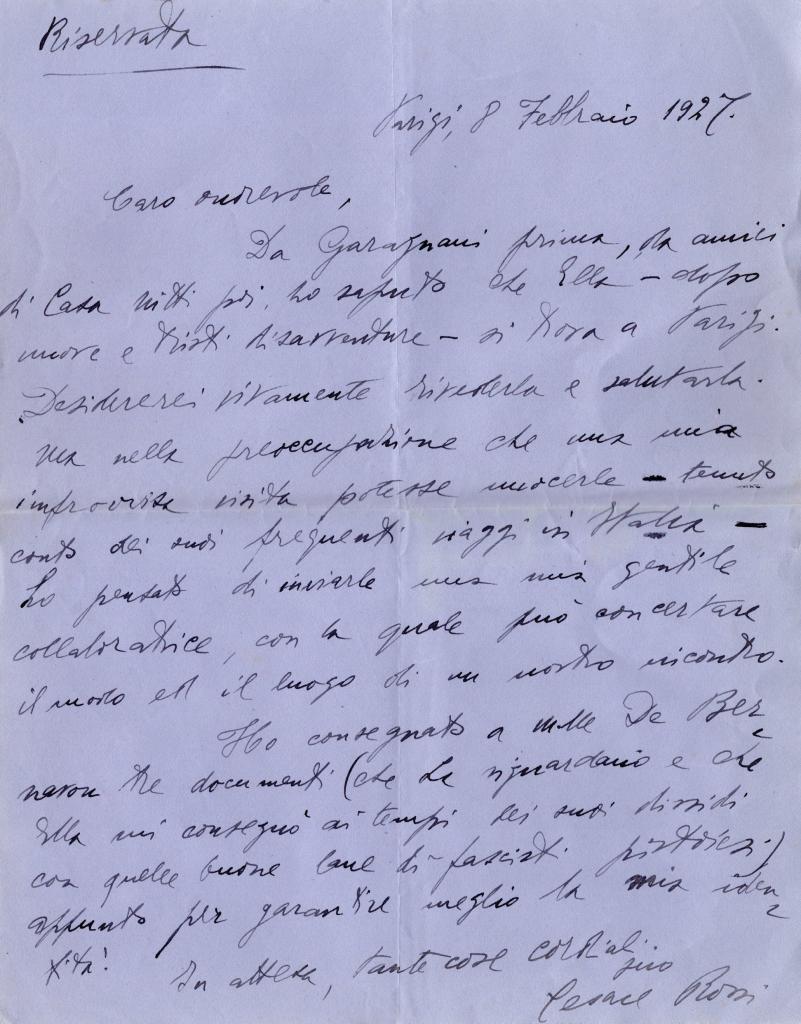 Riservata
Parigi, 8 Febbraio 1927.
Caro onorevole,
Da Garagnani prima, da amici
di Casa Nitti poi, ho saputo che Ella – dopo
nuove e tristi disavventure – si trova a Parigi.
Desidererei vivamente rivederla e salutarla.
Ma nella preoccupazione che una mia
improvvisa visita potesse nuocerle – tenuto
conto dei suoi frequenti viaggi in Italia –
ho pensato di inviarle una mia gentile
collaboratrice, con la quale può concertare
il modo ed il luogo di un nostro incontro.
Ho consegnato a mlle De Ber=
navon tre documenti (che La riguardano e che
Ella mi consegnò ai tempi dei suoi dissidi
con quelle buone lane di fascisti pistoiesi)
appunto per garantire meglio la mia iden=
tità!
In attesa, tante cose cordiali
suo
Cesare Rossi